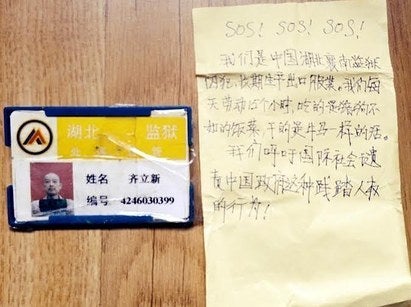 湖北 监狱
姓名 齐立新
编号 4246030399
SOS! SOS! SOS!
我们是中国湖北襄南监狱
囚犯，长期生产出口服装。我们每
天劳动15个小时，吃的是猪狗不
如的饭菜，干的是牛马一样的活。
我们呼吁国际社会谴
责中国政府这种践踏人权
的行为！